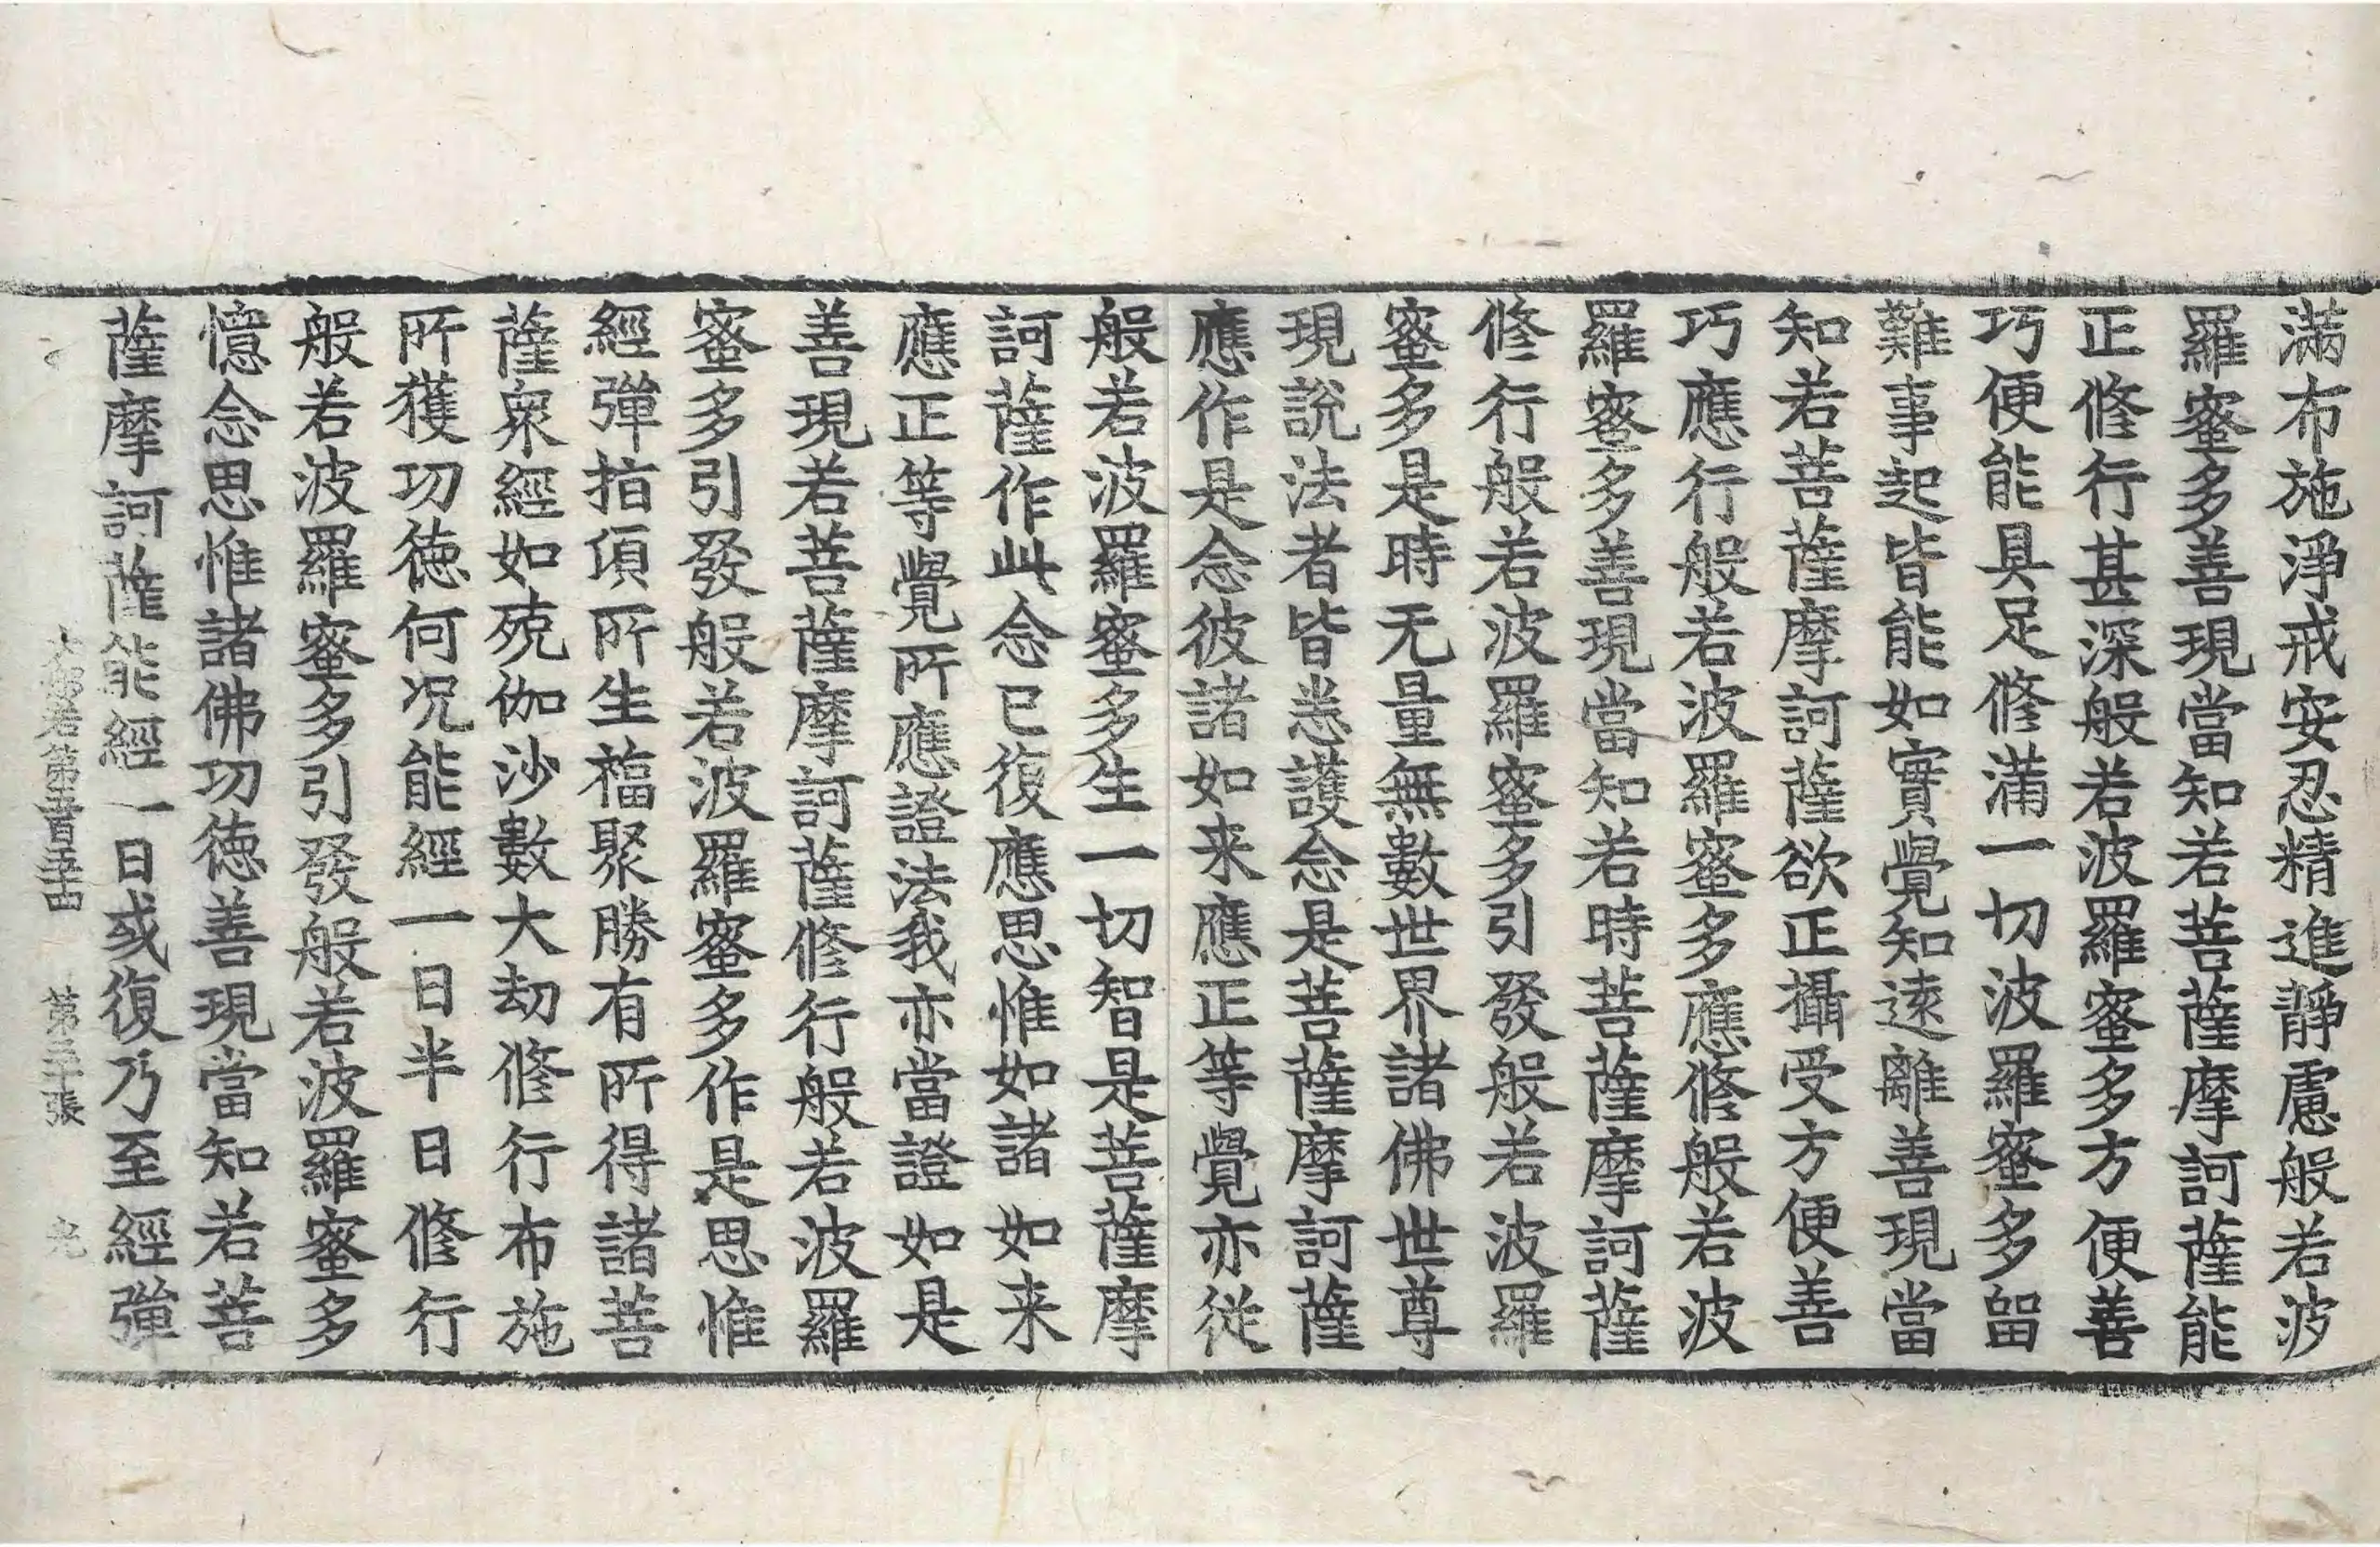 滿布施淨戒安忍精進靜慮般若波
羅蜜多善現當知若菩薩摩訶薩能
正修行甚深般若波羅蜜多方便善
巧便能具足修滿一切波羅蜜多留
難事起皆能如實覺知遠離善現當
知若菩薩摩訶薩欲正攝受方便善
巧應行般若波羅蜜多應修般若波
羅蜜多善現當知若時菩薩摩訶薩
修行般若波羅蜜多引發般若波羅
蜜多是時无量無數世界諸佛世尊
現說法者皆悉護念是菩薩摩訶薩
應作是念彼諸如来應正等覺亦從
般若波羅蜜多生一切智是菩薩摩
訶薩作此念已復應思惟如諸如来
應正等覺所應證法我亦當證如是
善現若菩薩摩訶薩修行般若波羅
蜜多引發般若波羅蜜多作是思惟
經彈指頃所生福聚勝有所得諸菩
薩衆經如殑伽沙數大劫修行布施
所獲功德何况能經一日半日修行
般若波羅蜜多引發般若波羅蜜多
憶念思惟諸佛功德善現當知若菩
薩摩訶薩能經一日或復乃至經彈
般若第 第 張